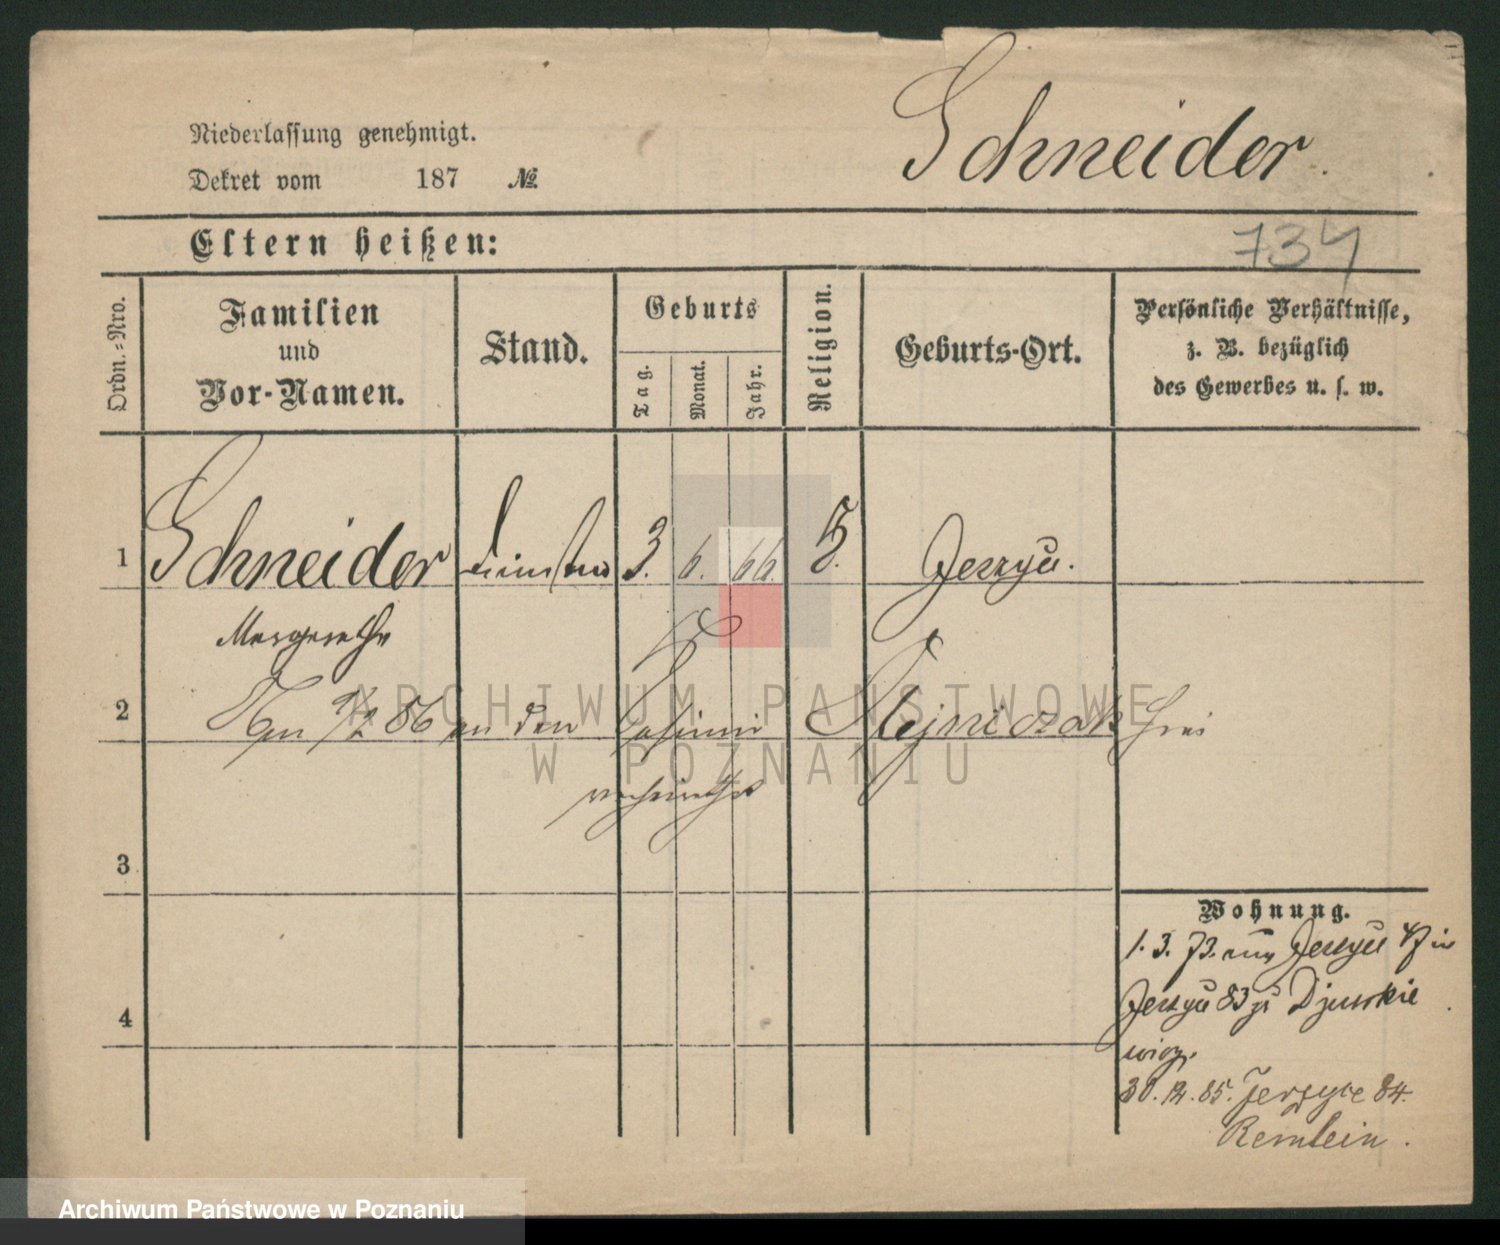 Schneider.
Niederlassung genehmigt.
Dekret vom 187 №
Eltern heißen:
734
Ordn.-Nro.
Familien
und
Vor-Namen.
Stand.
Geburts
Tag.
Monat.
Jahr.
Religion.
Geburts-Ort.
Persönliche Verhältnisse,
z. B. bezüglich
des Gewerbes u. s. w.
1 Schneider 3. 6. 66. Jerzyce.
Margarethe
2 86 an den Casimir Stejniczak
verheirathet
3
4
Wohnung.
1. 3. 73. aus Jerzyce
Jerzyce 83 zu
30. 12. 85. Jerzyce 84.
ARCHIWUM PAŃSTWOWE
W POZNANIU
Archiwum Państwowe w Poznaniu